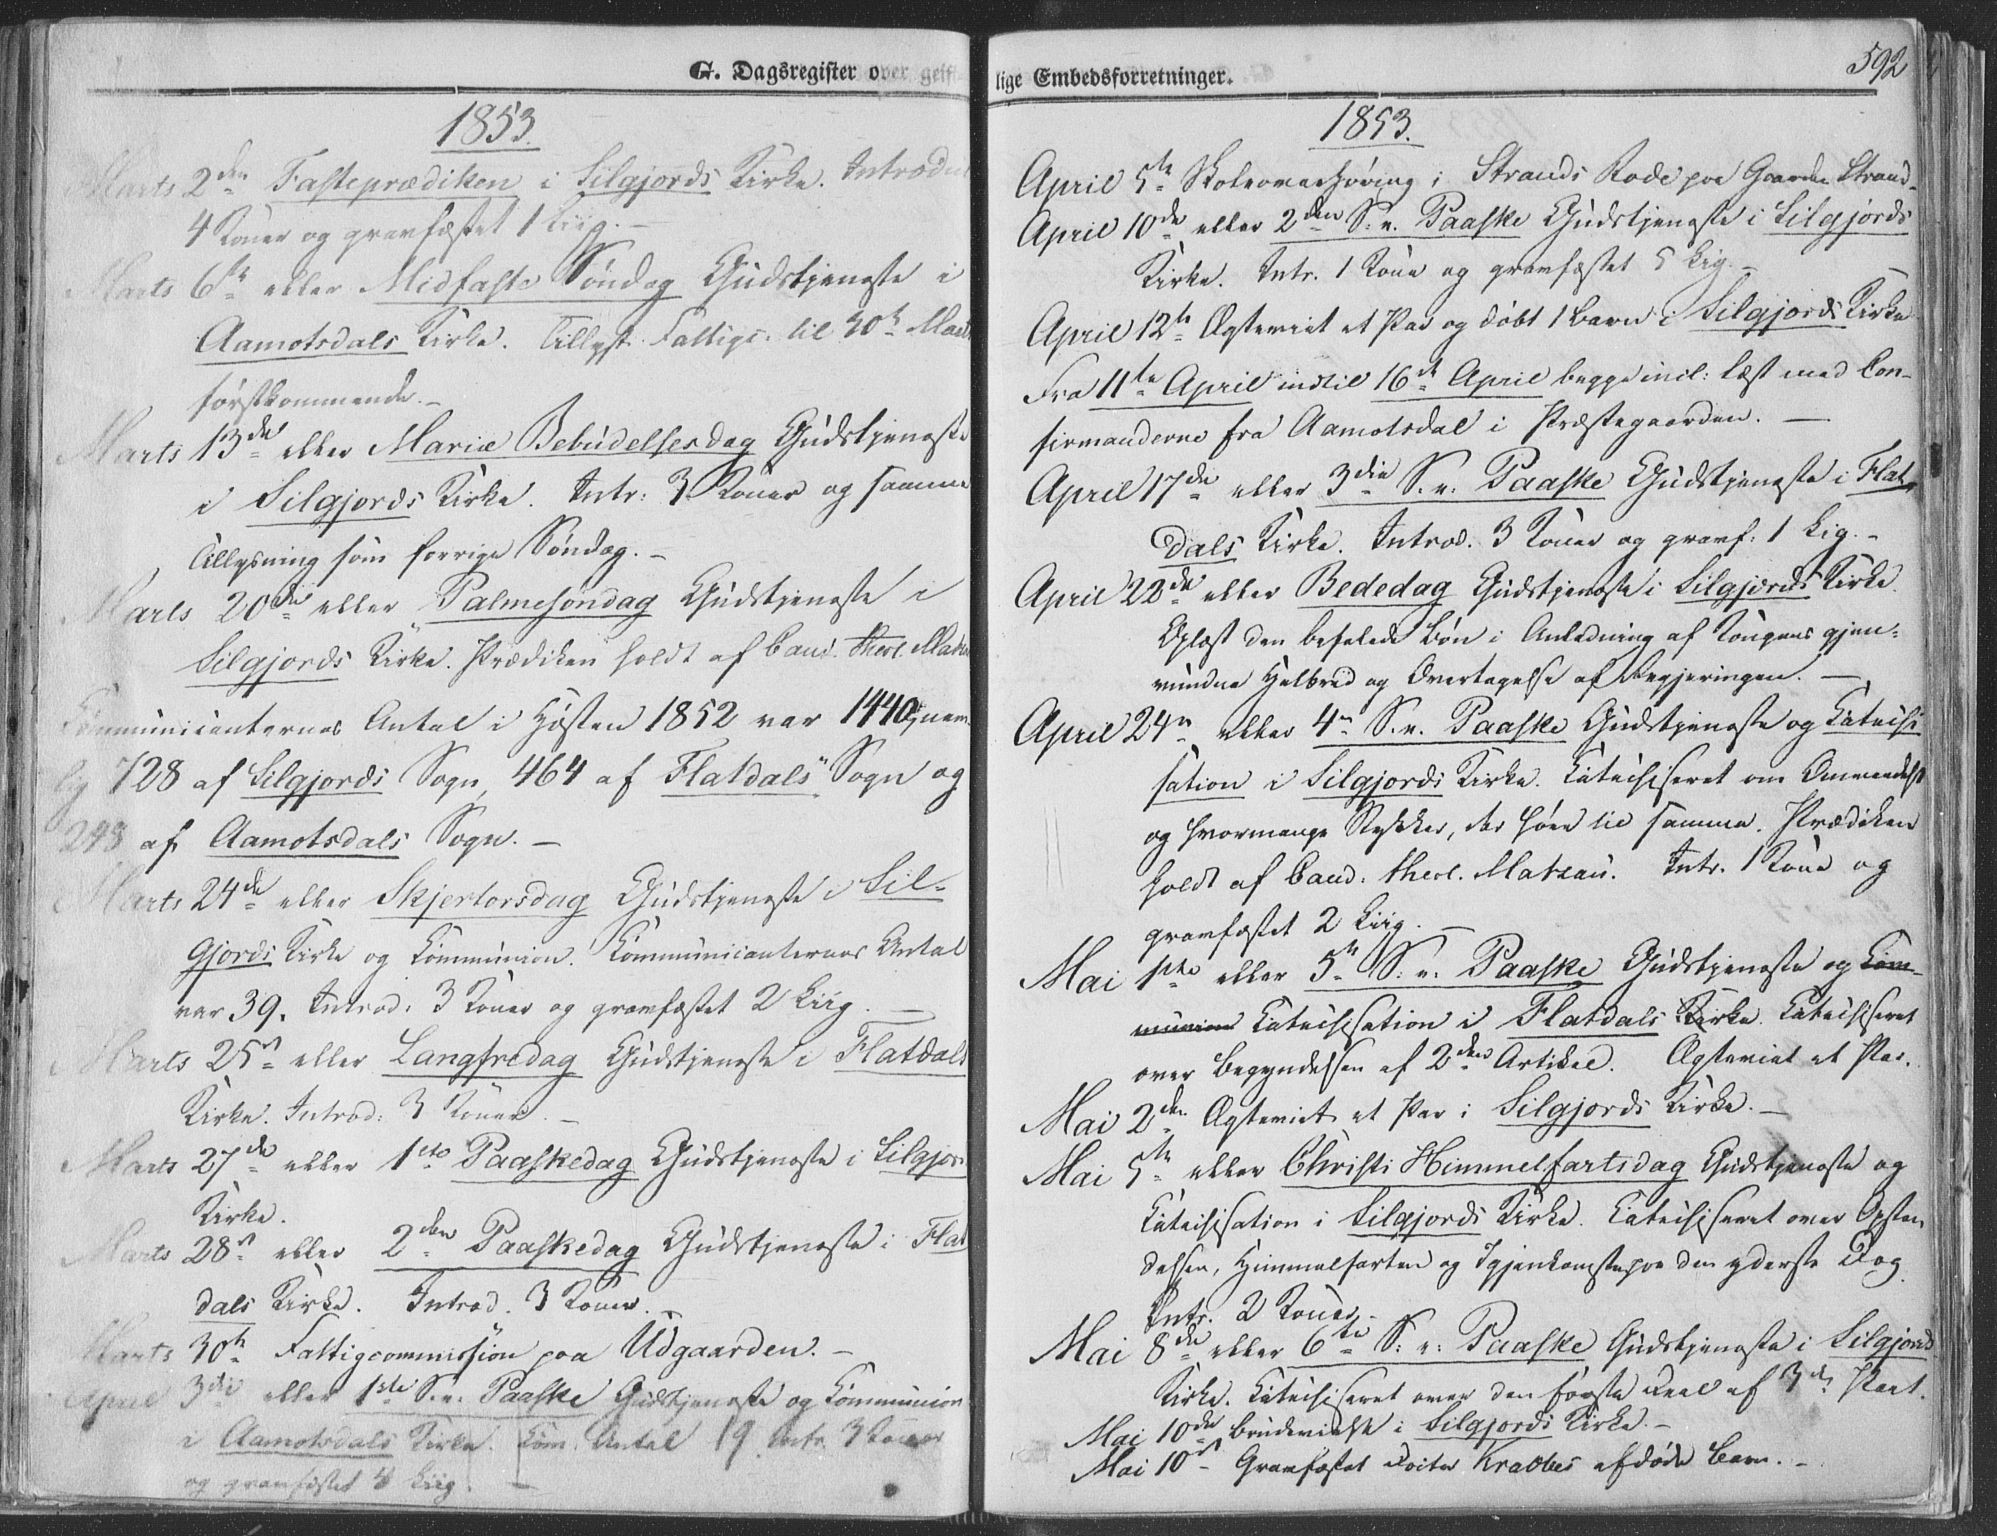 G. Dagsregister over geist-
1853.
Marts 2den Fasteprædiken i Silgjords Kirke. Introdu
4 Koner og gravfæstet 1 Liig. –
Marts 6te eller Midfaste Söndag Gudstjeneste i
Aamotsdals Kirke. Tillyst Fattigc. til 30te Marts
förstkommende. –
Marts 13de eller Mariæ Bebudelsesdag Gudstjeneste
i Silgjords Kirke. Intr: 3 Koner og samme
Tillysning som forrige Söndag. –
Marts 20de eller Palmesöndag Gudstjeneste i
Silgjords Kirke. Prædiken holdt af Cand. theol. Matzau
Communicanternes Antal i Hösten 1852 var 1440, nem-
lig 728 af Silgjords Sogn, 464 af Flatdals Sogn og
248 af Aamotsdals Sogn. –
Marts 24de eller Skjertorsdag Gudstjeneste i Sil-
gjords Kirke og Communion. Communicanternes Antal
var 39. Introd: 3 Koner og gravfæstet 2 Liig. –
Marts 25de eller Langfredag Gudstjeneste i Flatdals
Kirke. Introd: 3 Koner. –
Marts 27de eller 1ste Paaskedag Gudstjeneste i Silgjords
Kirke.
Marts 28de eller 2den Paaskedag Gudstjeneste i Flat
dals Kirke. Introd. 3 Koner. –
Marts 30te Fattigcommission paa Udgaarden. –
April 3die eller 1ste S. e. Paaske Gudstjeneste og Communion
i Aamotsdals Kirke. Com. Antal 19 Intr. 3 Koner
og gravfæstet 4 Liig. –
lige Embedsforretninger.
592
1853.
April 5te Skoleoverhöring i Strands Rode paa Gaarden Strand.
April 10de eller 2den S. e. Paaske Gudstjeneste i Silgjords
Kirke. Intr. 1 Kone og gravfæstet 5 Liig. –
April 12te Ægteviet et Par og döbt 1 Barn i Silgjords Kirke
Fra 11te April indtil 16de April begge incl: læst med Con-
firmanderne fra Aamotsdal i Præstegaarden. –
April 17de eller 3die S. e. Paaske Gudstjeneste i Flat
dals Kirke. Introd. 3 Koner og gravf: 1 Lig. –
April 22de eller Bededag Gudstjeneste i Silgjords Kirke.
Oplæst den befalede Bön i Anledning af Kongens gjen-
vundne Helbred og Overtagelse af Regjeringen. –
April 24de eller 4de S. e. Paaske Gudstjeneste og Catechi
sation i Silgjords Kirke. Catechiseret om Omvendelse
og hvormange Stykker, der höre til samme. Prædiken
holdt af Cand. theol. Matzau. Intr. 1 Kone og
gravfæstet 2 Liig. –
Mai 1ste eller 5te S. e. Paaske Gudstjeneste og Com-
munion Catechisation i Flatdals Kirke. Catechiseret
over Begyndelsen af 2den Artikel. Ægteviet et Par.
Mai 2den Ægteviet et Par i Silgjords Kirke. –
Mai 5te eller Christi Himmelfartsdag Gudstjeneste og
Catechisation i Silgjords Kirke. Catechiseret over Opstan
delsen, Himmelfarten og Igjenkomst paa den yderste Dag.
Intr. 2 Koner. –
Mai 8de eller 6te S. e. Paaske Gudstjeneste i Silgjords
Kirke. Catechiseret over den förste Deel af 3die Part.
Mai 10de Brudevielse i Silgjords Kirke. –
Mai 10de Gravfæstet Doctor Krabbes afdöde Barn. –